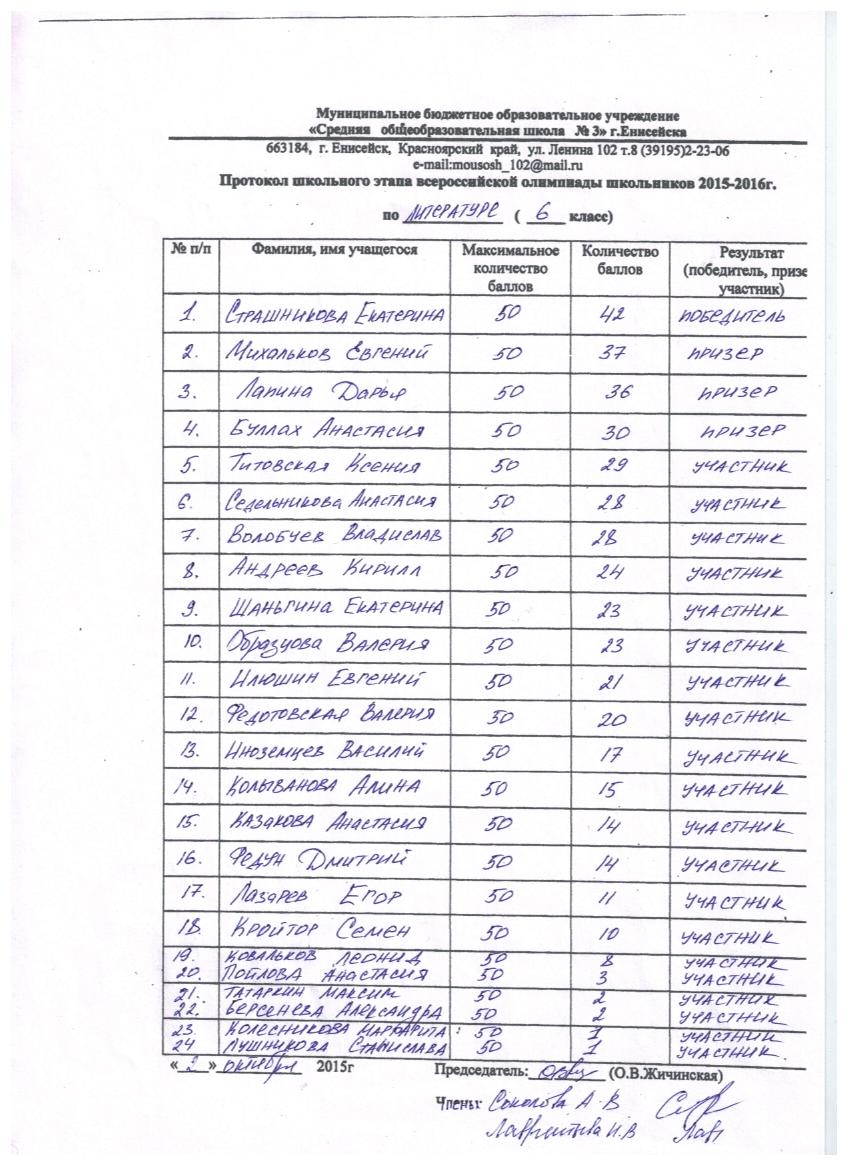 Муниципальное бюджетное образовательное учреждение
«Средняя общеобразовательная школа № 3» г.Енисейска
663184, г. Енисейск, Красноярский край, ул. Ленина 102 т.8 (39195)2-23-06
e-mail:mousosh_102@mail.ru
Протокол школьного этапа всероссийской олимпиады школьников 2015-2016г.
по ЛИТЕРАТУРЕ ( 6 класс)
№ п/п Фамилия, имя учащегося Максимальное количество баллов Количество баллов Результат (победитель, призе участник)
1. Страшникова Екатерина 50 42 победитель
2. Михальков Евгений 50 37 призер
3. Лапина Дарья 50 36 призер
4. Буллах Анастасия 50 30 призер
5. Титовская Ксения 50 29 участник
6. Седельникова Анастасия 50 28 участник
7. Волобуев Владислав 50 28 участник
8. Андреев Кирилл 50 24 участник
9. Шаньгина Екатерина 50 23 участник
10. Образцова Валерия 50 23 участник
11. Илюшин Евгений 50 21 участник
12. Федотовская Валерия 50 20 участник
13. Иноземцев Василий 50 17 участник
14. Колыванова Алина 50 15 участник
15. Казакова Анастасия 50 14 участник
16. Федун Дмитрий 50 14 участник
17. Лазарев Егор 50 11 участник
18. Кройтор Семен 50 10 участник
19. Ковальков Леонид 50 8 участник
20. Анастасия 50 3 участник
21. Татаркин Максим 50 2 участник
22. Берсенева Александра 50 2 участник
23. Колесникова Маргарита 50 1 участник
24 Лушникова Станислава 50 1 участник.
« 2 » октября 2015г Председатель: (О.В.Жичинская)
Члены: Соколова А.В
Лаврентьева И.В